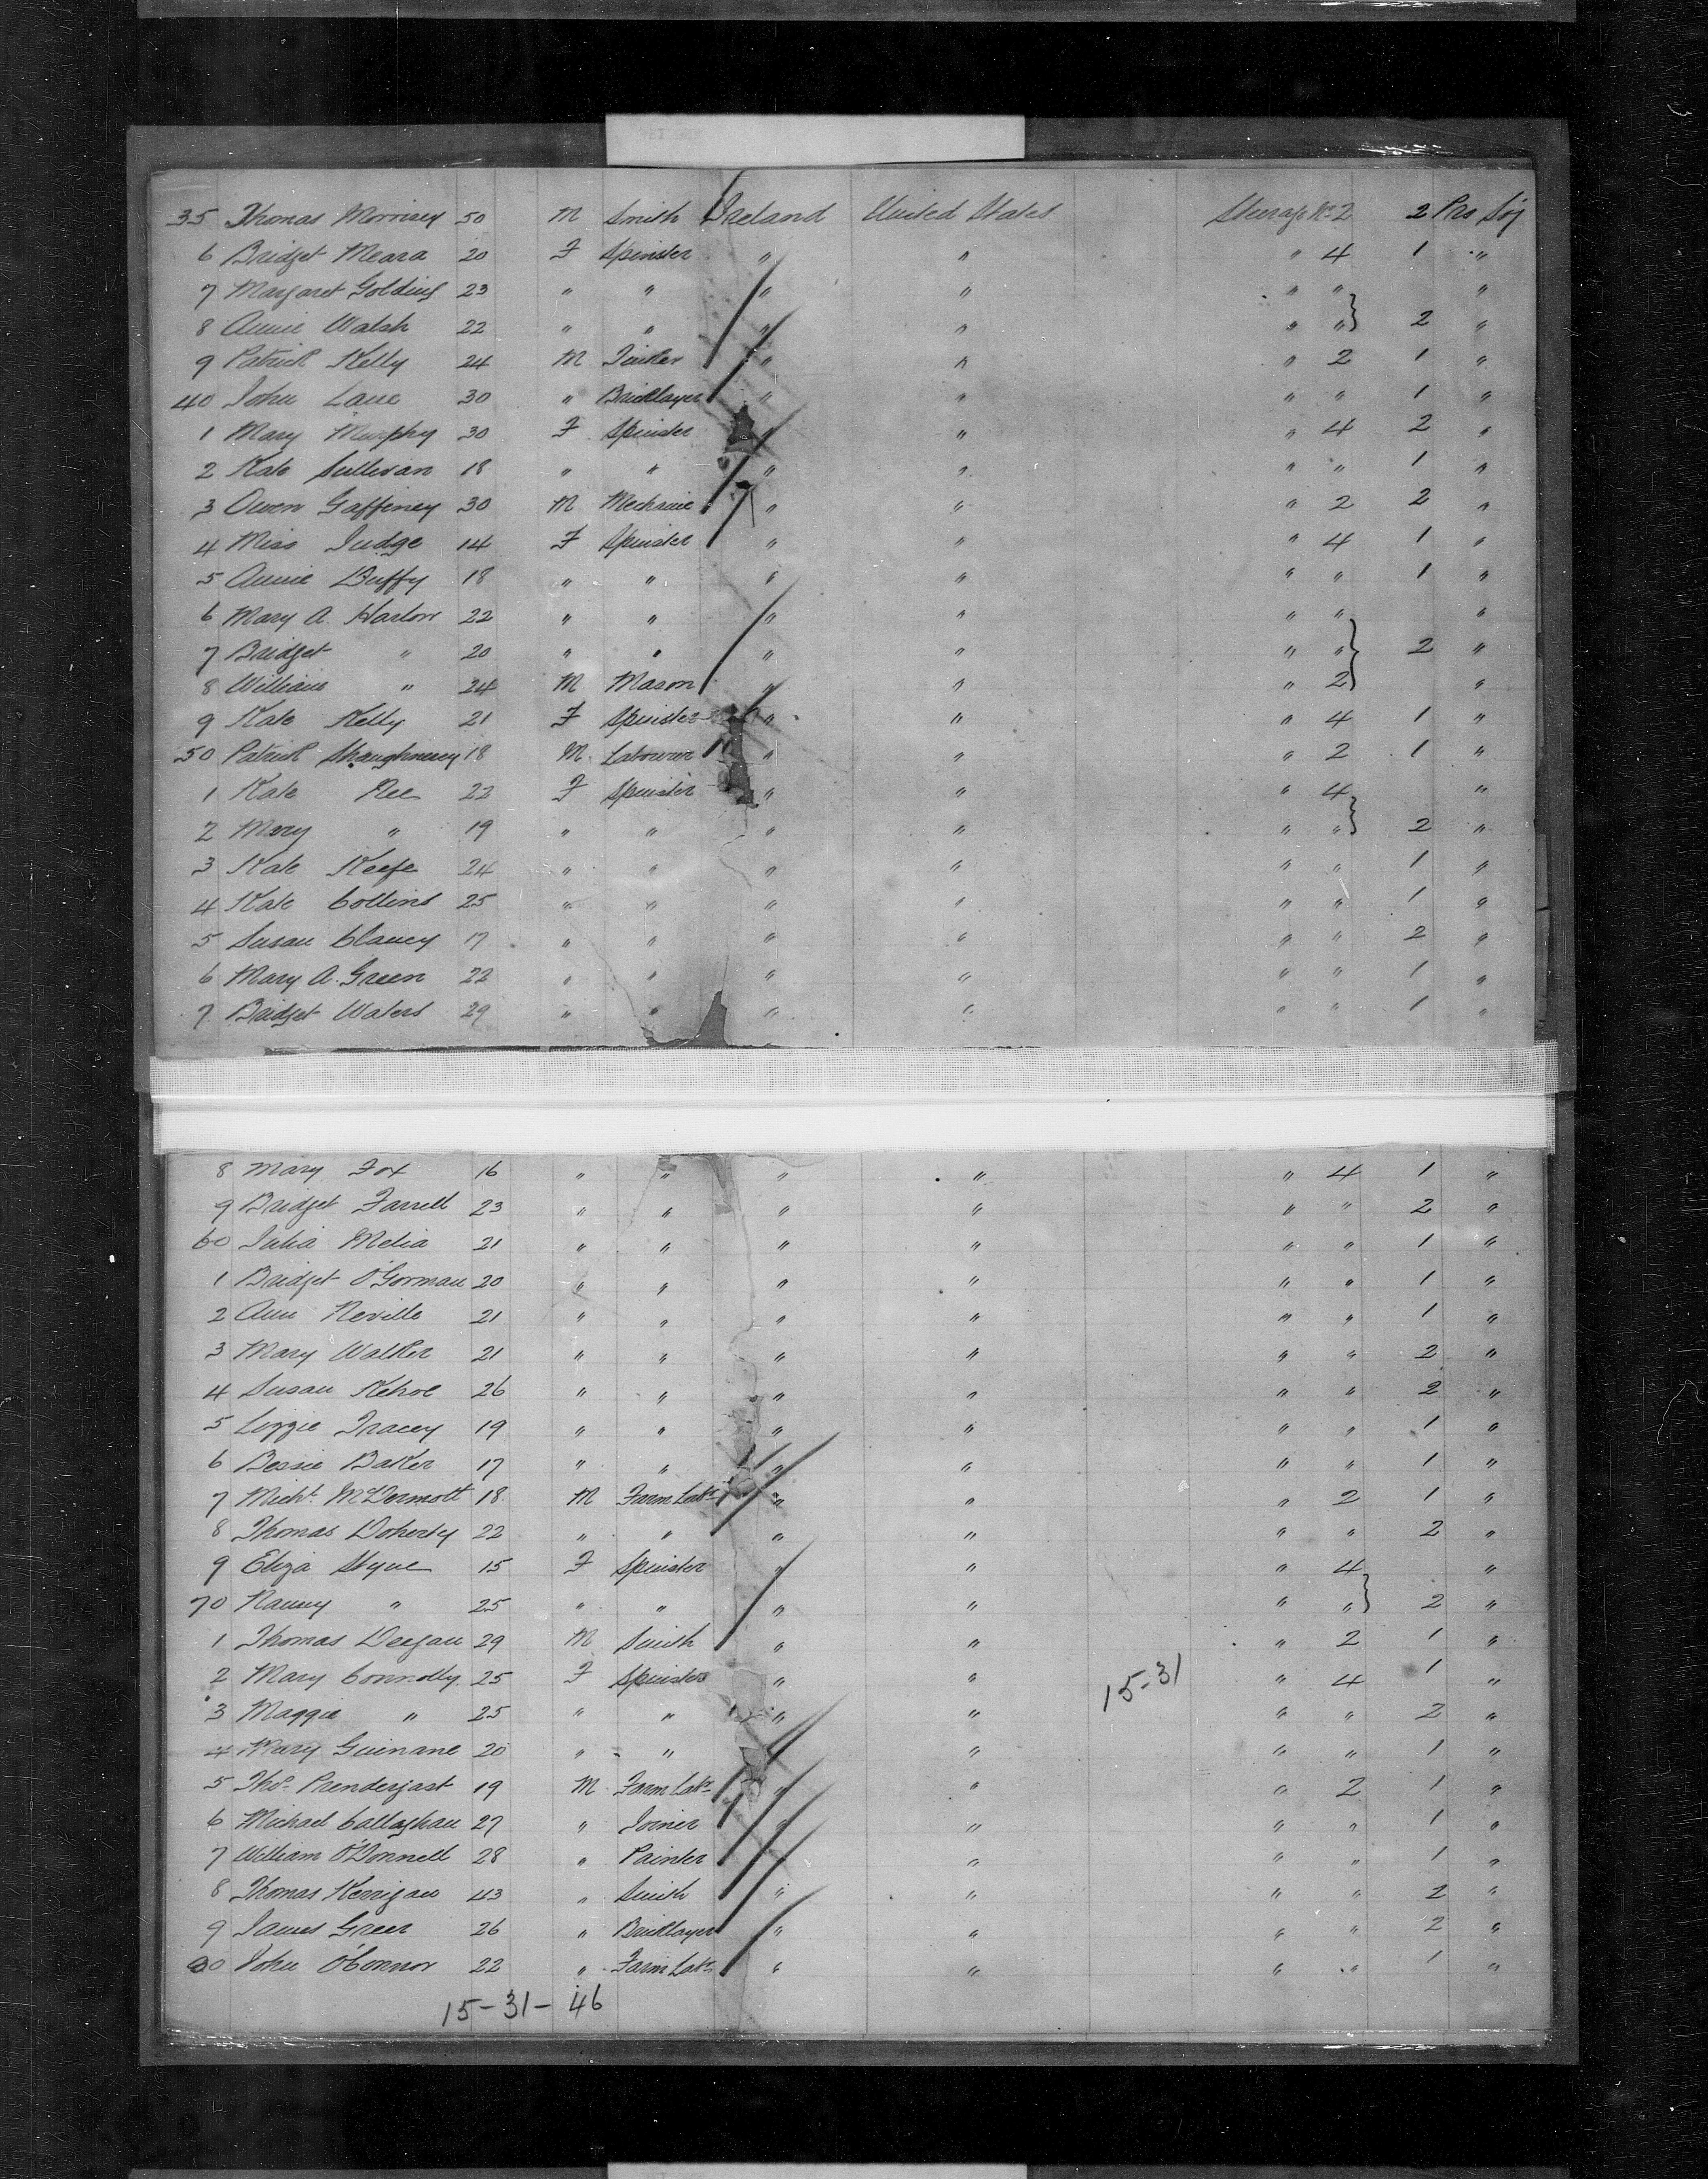 35 Thomas Morrisey 50 M Smith Ireland United States Steerage No 2 2 Pcs Lög
6 Bridget Meara 20 F Spinster " " " 4 1 "
7 Margaret Golding 23 " " " " " " "
8 Annie Walsh 22 " " " " " " 2 "
9 Patrick Kelly 24 M Tinker " " " 2 1 "
40 John Lane 30 " Bricklayer " " " " 1 "
1 Mary Murphy 30 F Spinster " " " 4 2 "
2 Kate Sullivan 18 " " " " " " 1 "
3 Owen Gaffeney 30 M Mechanic " " " 2 2 "
4 Miss Judge 14 F Spinster " " " 4 1 "
5 Annie Duffy 18 " " " " " " 1 "
6 Mary A. Harlow 22 " " " " " " "
7 Bridget " 20 " " " " " " 2 "
8 William " 24 M Mason " " " 2 "
9 Kate Kelly 21 F Spinster " " " 4 1 "
50 Patrick Shaughnessy 18 M Labourer " " " 2 1 "
1 Kate Nee 22 F Spinster " " " 4 "
2 Mary " 19 " " " " " " 2 "
3 Kate Keefe 24 " " " " " " 1 "
4 Kate Collins 25 " " " " " " 1 "
5 Susan Clancy 17 " " " " " " 2 "
6 Mary A. Green 22 " " " " " " 1 "
7 Bridget Waters 29 " " " " " " 1 "
8 Mary Fox 16 " " " " " 4 1 "
9 Bridget Farrell 23 " " " " " " 2 "
60 Julia Melia 21 " " " " " " 1 "
1 Bridget O'Gorman 20 " " " " " " 1 "
2 Ann Neville 21 " " " " " " 1 "
3 Mary Walker 21 " " " " " " 2 "
4 Susan Kehoe 26 " " " " " " 2 "
5 Lizzie Tracey 19 " " " " " " 1 "
6 Bessie Baker 17 " " " " " " 1 "
7 Michl. McDermott 18 M Farm Labr " " " 2 1 "
8 Thomas Doherty 22 " " " " " " 2 "
9 Eliza Skyne 15 F Spinster " " " 4 "
70 Nanny " 25 " " " " " " 2 "
1 Thomas Deegan 29 M Smith " " " 2 1 "
2 Mary Connolly 25 F Spinster " " 15-31 " 4 1 "
3 Maggie " 25 " " " " " " 2 "
4 Mary Guinane 20 " " " " " " 1 "
5 Thos. Prendergast 19 M Farm Labr " " " 2 1 "
6 Michael Callaghan 27 " Joiner " " " " 1 "
7 William O'Donnell 28 " Painter " " " " 1 "
8 Thomas Kerrigan 43 " Smith " " " " 2 "
9 James Greer 26 " Bricklayer " " " " 2 "
80 John O'Connor 22 " Farm Labr " " " " 1 "
15-31-46